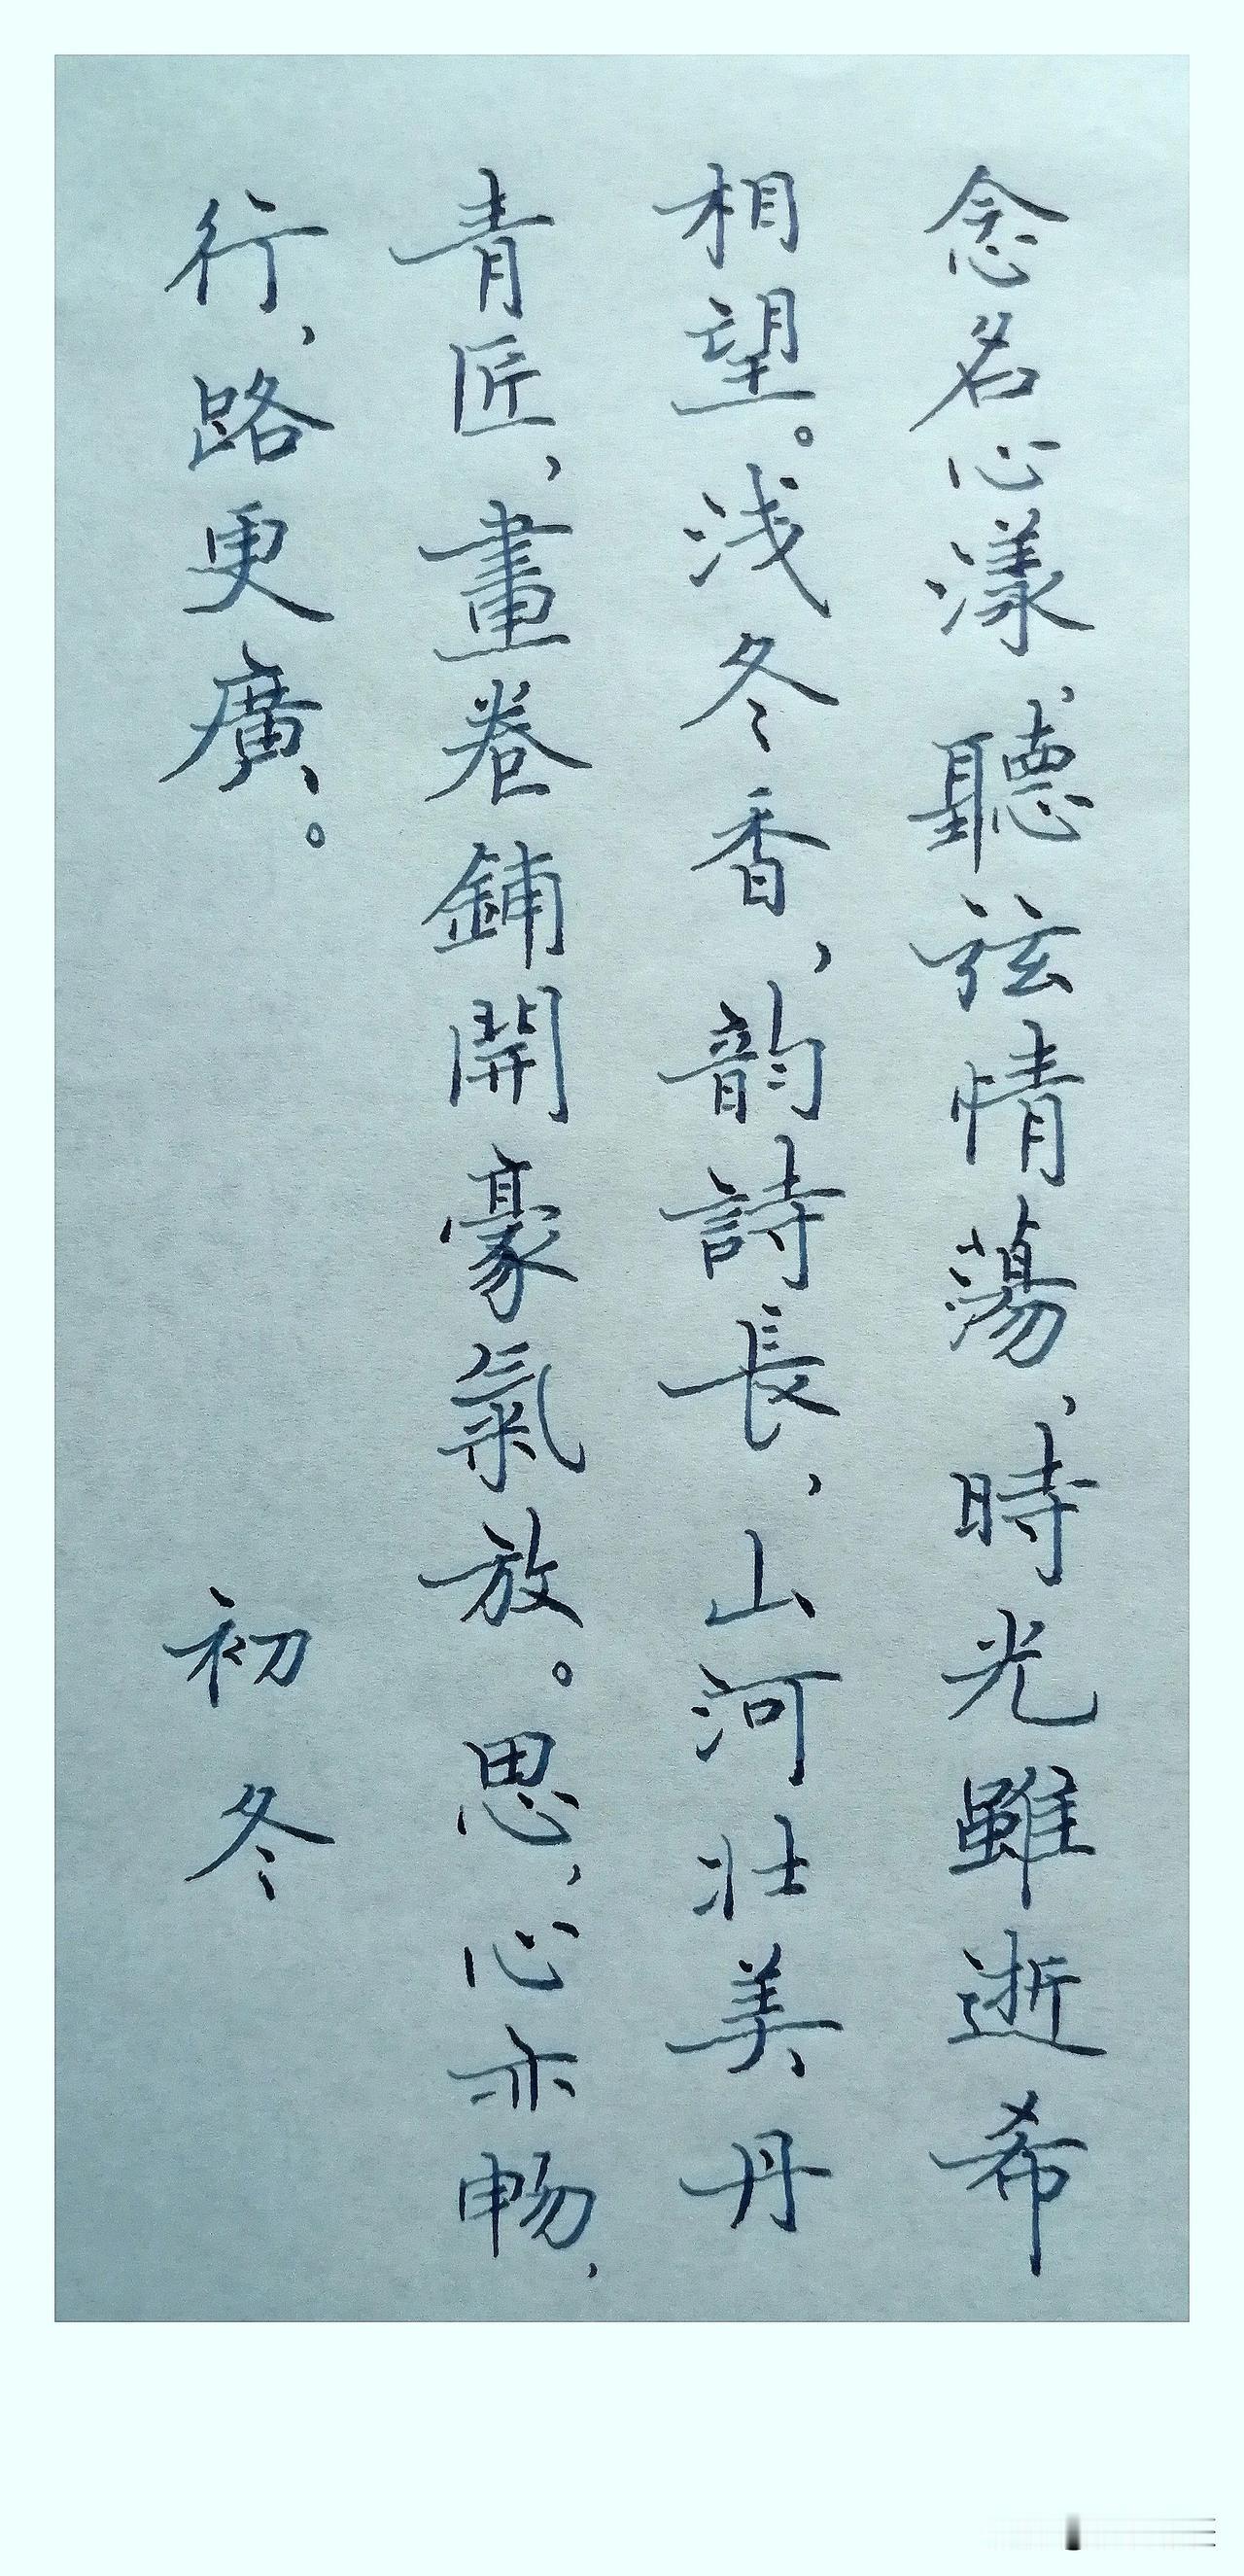 念名心漾，聽弦情蕩，時光雖逝希
相望。浅冬香，韵詩長，山河壮美丹
青匠，畫卷鋪開豪氣放。思，心亦畅，
行，路更廣。
初冬